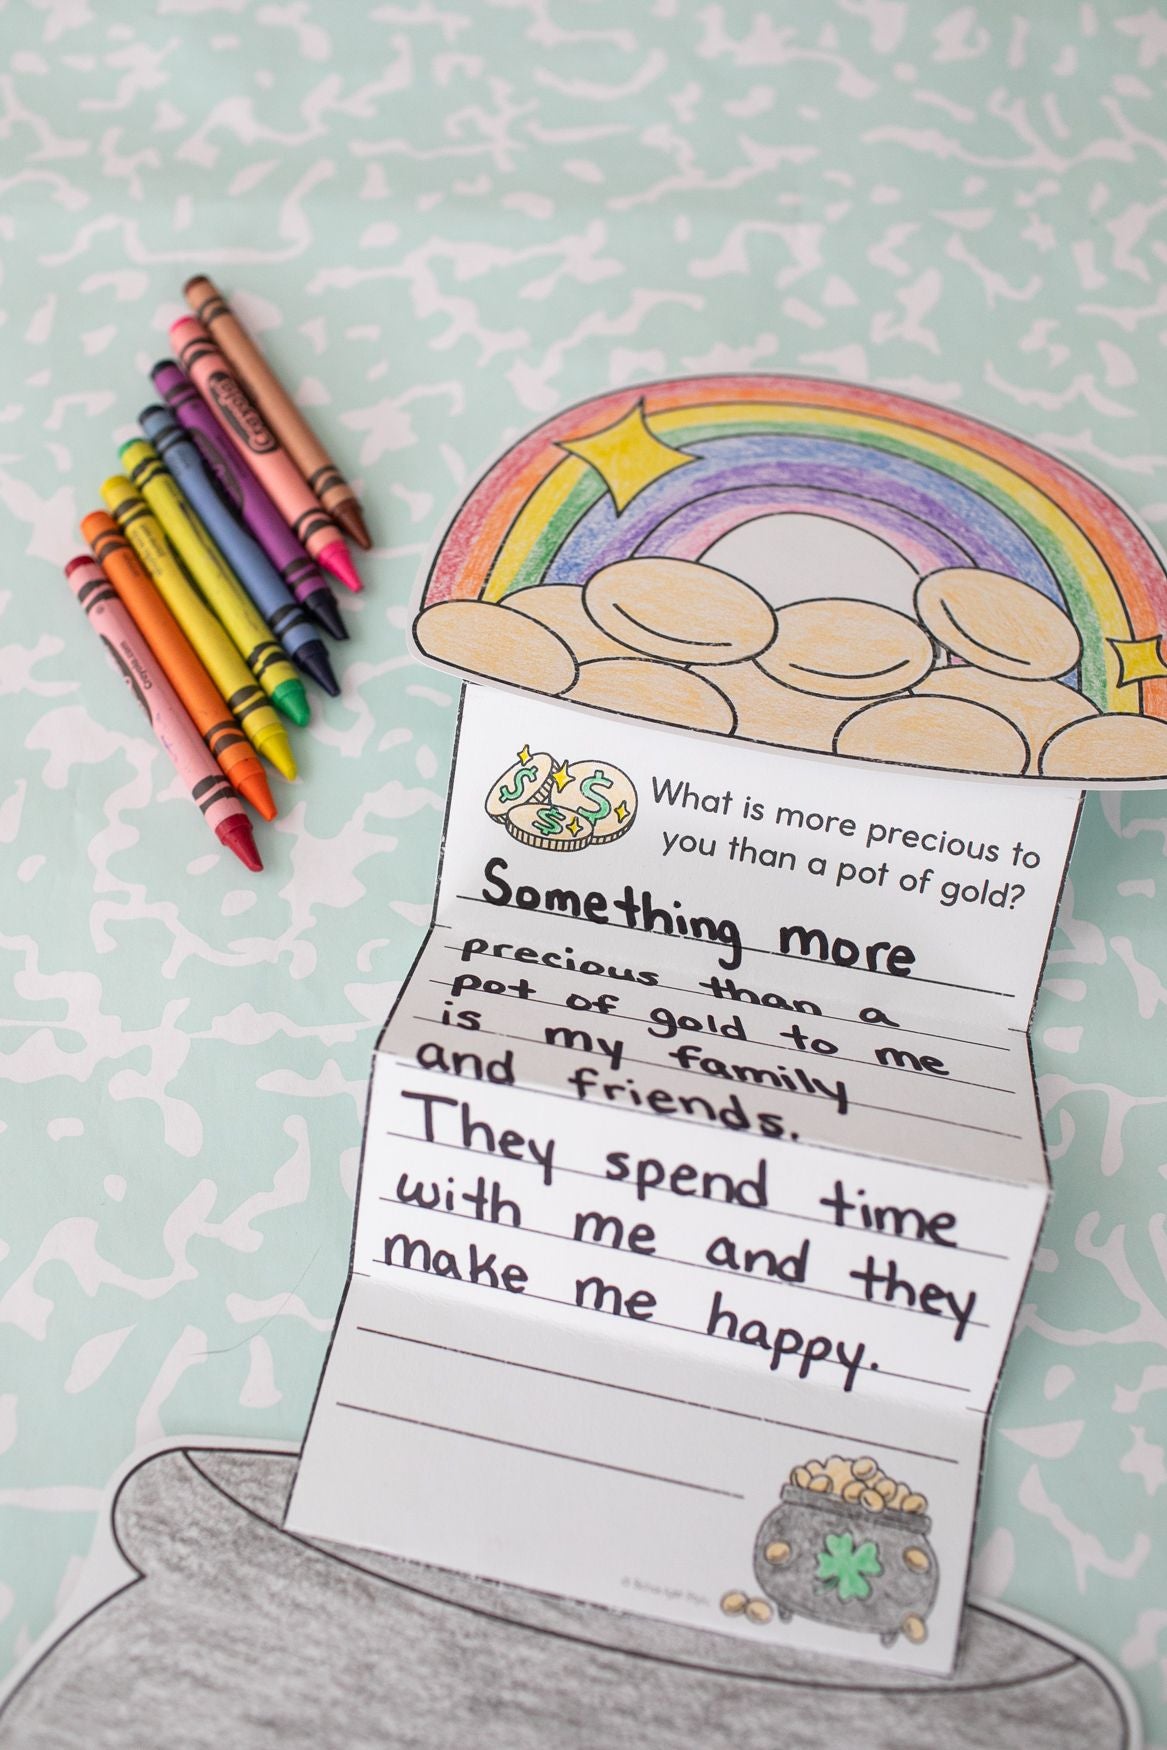 Crayola
Crayola.com
$ $
$
What is more precious to
you than a pot of gold?
Something more
precious than a
pot of gold to me
is my family
and friends.
They spend time
with me and they
make me happy.